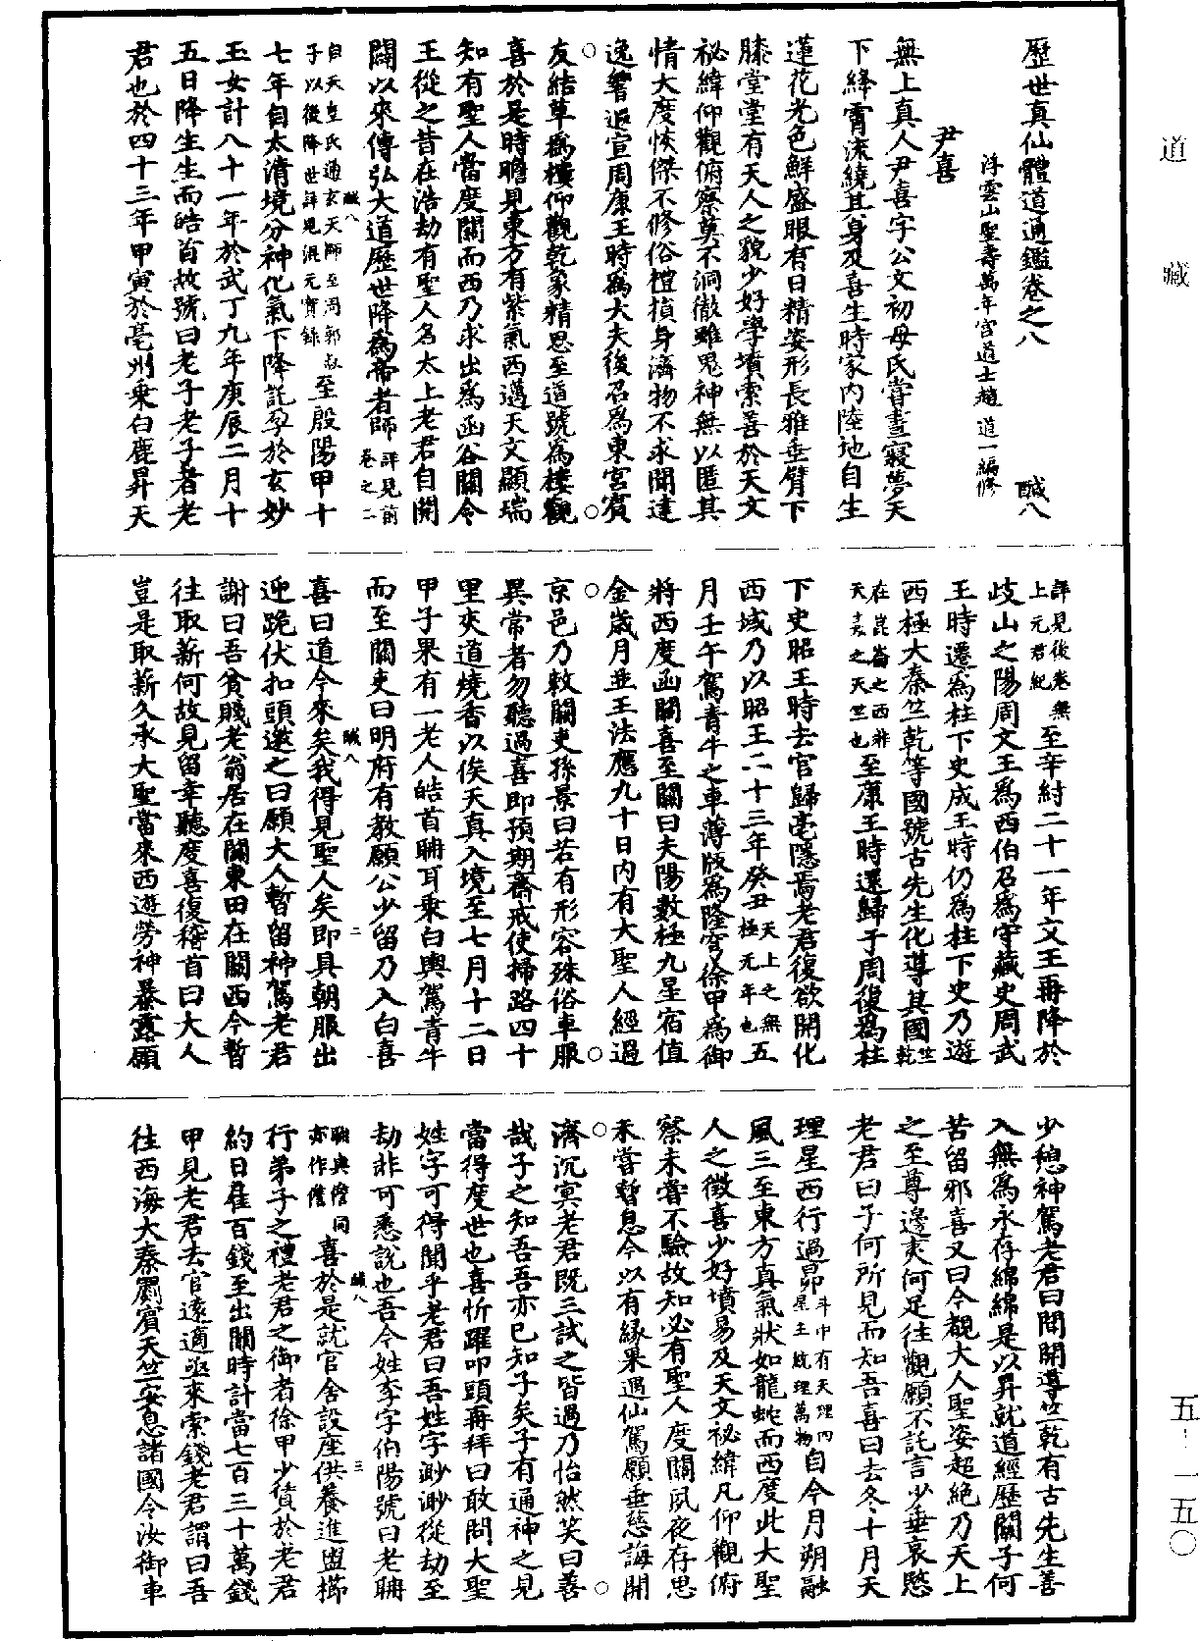 道藏
五·一五〇
歷世真仙體道通鑑卷之八　　　　醎八
浮雲山聖壽萬年宮道士趙道一編修
尹喜
無上真人尹喜字公文初母氏嘗晝寢夢天
下絳霄流繞其身及喜生時家內陸地自生
蓮花光色鮮盛眼有日精姿形長雅垂臂下
膝堂堂有天人之貌少好學墳索善於天文
祕緯仰觀俯察莫不洞徹雖鬼神無以匿其
情大度恢傑不修俗禮損身濟物不求聞達
逸響遐宣周康王時為大夫後召為東宮賓
友結草為樓仰觀乾象精思至道號為樓觀
喜於是時瞻見東方有紫氣西邁天文顯瑞
知有聖人當度關而西乃求出為函谷關令
王從之昔在浩劫有聖人名太上老君自開
闢以來傳弘大道歷世降為帝者師詳見前卷之二
自天皇氏通玄天師至周郭叔子以後降世詳見混元實錄至殷陽甲十
七年自太清境分神化氣下降託孕於玄妙
玉女計八十一年於武丁九年庚辰二月十
五日降生生而皓首故號曰老子老子者老
君也於四十三年甲寅於亳州乘白鹿昇天
詳見後卷無上元君紀至辛紂二十一年文王再降於
歧山之陽周文王為西伯召為守藏史周武
王時遷為柱下史成王時仍為柱下史乃遊
西極大秦竺乾等國號古先生化導其國竺乾
在崑崙之西非天之天竺也至康王時還歸于周復為柱
下史昭王時去官歸亳隱焉老君復欲開化
西域乃以昭王二十三年癸丑天上之無極元年也五
月壬午駕青牛之車薄版為隆穹徐甲為御
將西度函關喜至關曰夫陽數極九星宿值
金歲月並王法應九十日內有大聖人經過
京邑乃敕關吏孫景曰若有形容殊俗車服
異常者勿聽過喜即預期齋戒使掃路四十
里夾道燒香以俟天真入境至七月十二日
甲子果有一老人皓首聃耳乘白輿駕青牛
而至關吏曰明府有教願公少留乃入白喜
喜曰道今來矣我得見聖人矣即具朝服出
迎跪伏扣頭邀之曰願大人暫留神駕老君
謝曰吾貧賤老翁居在關東田在關西今暫
往取薪何故見留幸聽度喜復稽首曰大人
豈是取薪久承大聖當來西遊勞神暴露願
少憩神駕老君曰聞開導竺乾有古先生善
入無為永存綿綿是以昇就道經歷關子何
苦留邪喜又曰今觀大人聖姿超絕乃天上
之至尊邊夷何足往觀願不託言少垂哀愍
老君曰子何所見而知吾喜曰去冬十月天
理星西行過昴斗中有天理四星主統理萬物自今月朔融
風三至東方真氣狀如龍蛇而西度此大聖
人之徵喜少好墳易及天文祕緯凡仰觀俯
察未嘗不驗故知必有聖人度關夙夜存思
未嘗暫息今以有緣果遇仙駕願垂慈誨開
濟沉冥老君既三試之皆過乃怡然笑曰善
哉子之知吾吾亦已知子矣子有通神之見
當得度世也喜忻躍叩頭再拜曰敢問大聖
姓字可得聞乎老君曰吾姓字渺渺從劫至
劫非可悉說也吾今姓李字伯陽號曰老聃
聃與儋同亦作儋喜於是就官舍設座供養進盥櫛
行弟子之禮老君之御者徐甲少賃於老君
約日雇百錢至出關時計當七百三十萬錢
甲見老君去官遠適亟來索錢老君謂曰吾
往西海大秦罽賓天竺安息諸國令汝御車